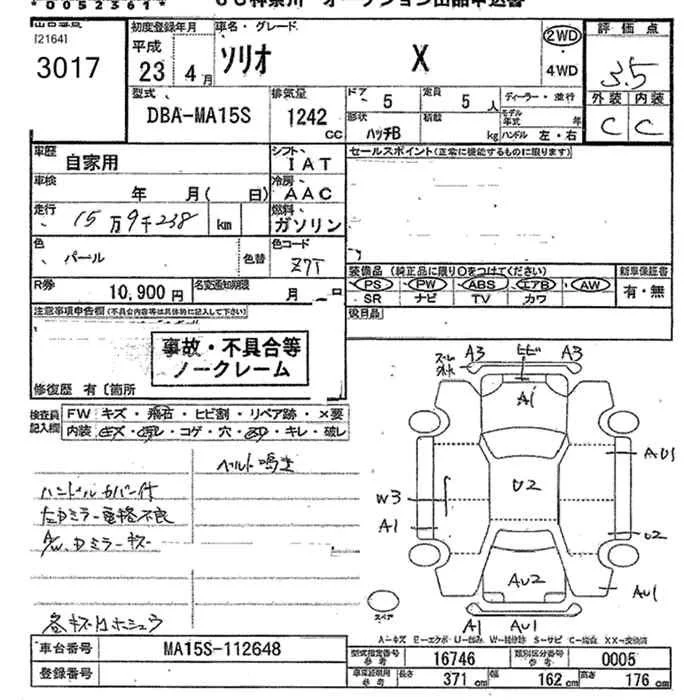 *00523614* UC神奈川 オークション出品申込書
[2164]
3017
初度登録年月
平成
23年 4月
車名・グレード
ソリオ X
2WD
・
4WD
評価点
3.5
外装 内装
C C
型式
DBA-MA15S
排気量
1242
cc
ドア 5
定員 5人
ディーラー・並行
形状 ハッチB
積載 kg
モデル年式 年
ハンドル 左・右
車歴 自家用
シフト IAT
セールスポイント(正常に機能するものに限ります)
車検 年 月( 日)
冷房 AAC
走行 15万9千238 km
燃料 ガソリン
色 パール
色替
色コード Z7T
装備品(純正品に限り〇をつけてください)
新車保証書
PS PW ABS エアB AW
SR ナビ TV カワ
有・無
R券 10,900円
名変通知期限 月 日
注意事項申告欄(不具合内容等は具体的に記入して下さい)
後日品
事故・不具合等
ノークレーム
修復歴 有〔箇所
検査員記入欄
FW キズ・飛石・ヒビ割・リペア跡・×要
内装 ・コゲ・穴・ ・キレ・破レ
ベルト鳴き
ハンドルカバー付
左ドアミラー電格不良
A/W、Dミラーキズ
各キズ ホシュウ
A3 ヒビ A3
A1
AU1
W3 U2
A1 U2
AU2 AU1
スペア
A1 AU1
A-キズ E-エクボ U-凹み W-補修跡 S-サビ C-腐蝕 XX-交換済
車台番号 MA15S-112648
登録番号
型式指定番号 参考 16746
類別区分番号 参考 0005
参考 長さ 371 cm 幅 162 cm 高さ 176 cm